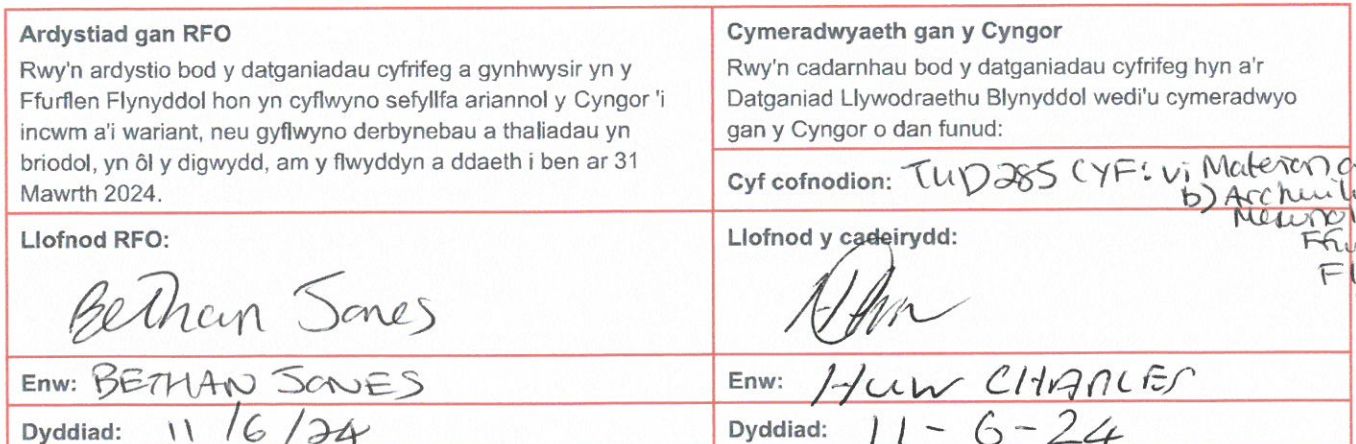 Ardystiad gan RFO
Rwy'n ardystio bod y datganiadau cyfrifeg a gynhwysir yn y
Ffurflen Flynyddol hon yn cyflwyno sefyllfa ariannol y Cyngor 'i
incwm a'i wariant, neu gyflwyno derbynebau a thaliadau yn
briodol, yn ôl y digwydd, am y flwyddyn a ddaeth i ben ar 31
Mawrth 2024.
Llofnod RFO:
Bethan Jones
Enw: BETHAN JONES
Dyddiad: 11/6/24
Cymeradwyaeth gan y Cyngor
Rwy'n cadarnhau bod y datganiadau cyfrifeg hyn a'r
Datganiad Llywodraethu Blynyddol wedi'u cymeradwyo
gan y Cyngor o dan funud:
Cyf cofnodion: TUD285 CYF: vi
b)
Llofnod y cadeirydd:
Enw: HUW CHARLES
Dyddiad: 11-6-24